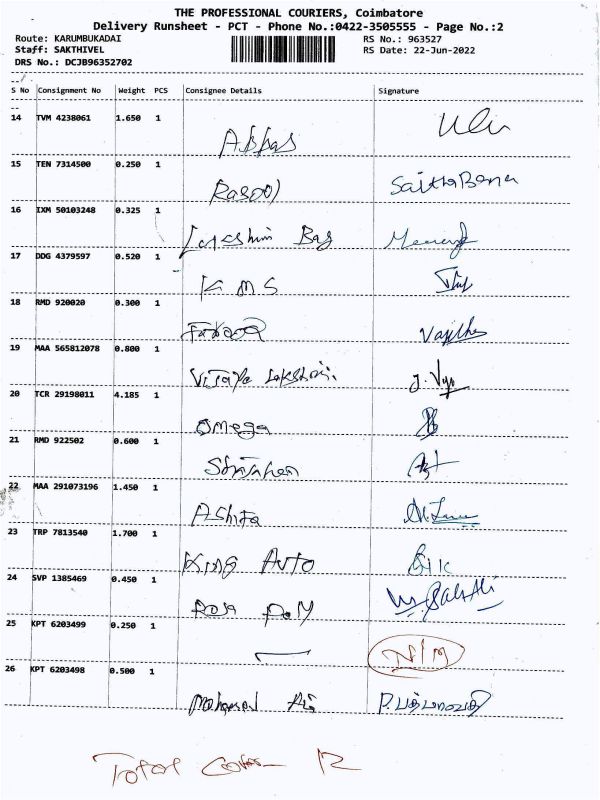 THE PROFESSIONAL COURIERS, Coimbatore
Delivery Runsheet - PCT - Phone No.:0422-3505555 - Page No.:2
Route: KARUMBUKADAI RS No.: 963527
Staff: SAKTHIVEL RS Date: 22-Jun-2022
DRS No.: DCJB96352702
S No Consignment No Weight PCS Consignee Details Signature
14 TVM 4238061 1.650 1
Abbas
15 TEN 7314500 0.250 1
Rasool SaithaBanu
16 IXM 50103248 0.325 1
Lakshim Bag
17 DDG 4379597 0.520 1
K M S
18 RMD 920020 0.300 1
19 MAA 565812078 0.800 1
Vijaya Lakshmi
20 TCR 29198011 4.185 1
Omega
21 RMD 922502 0.600 1
22 MAA 291073196 1.450 1
Ashifa
23 TRP 7813540 1.700 1
King Auto
24 SVP 1385469 0.450 1
25 KPT 6203499 0.250 1
N/M
26 KPT 6203498 0.500 1
P. பத்மாவதி
Total 12